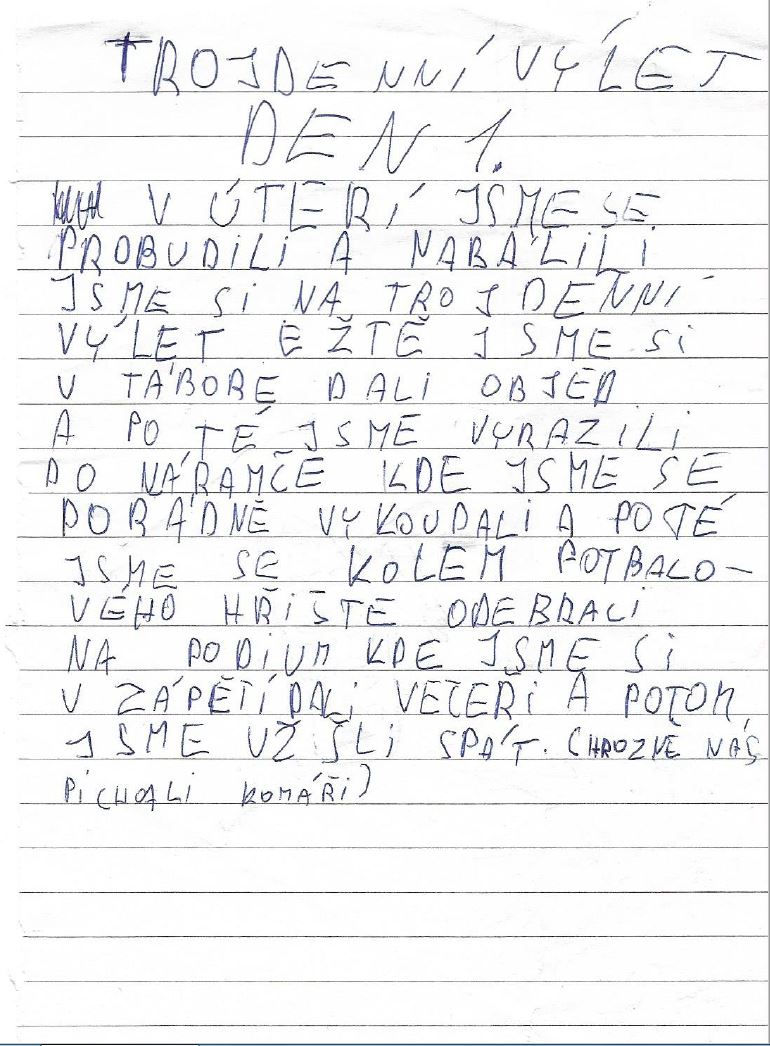 TROJDENNÍ VÝLET
DEN 1.
V ÚTERÍ JSME SE
PROBUDILI A NABÁLILI
JSME SI NA TROJDENNÍ
VÝLET EŽTĚ JSME SI
V TÁBORE DALI OBJED
A PO TÉ JSME VYRAZILI
DO NÁRAMČE KDE JSME SE
PORÁDNĚ VYKOUPALI A POTÉ
JSME SE KOLEM FOTBALO-
VÉHO HŘIŠTE ODEBRALI
NA PODIUM KDE JSME SI
V ZÁPĚTÍ DALI VEČEŘI A POTOM
JSME UŽ ŠLI SPÁT. (HROZNĚ NÁS
PÍCHALI KOMÁŘI)